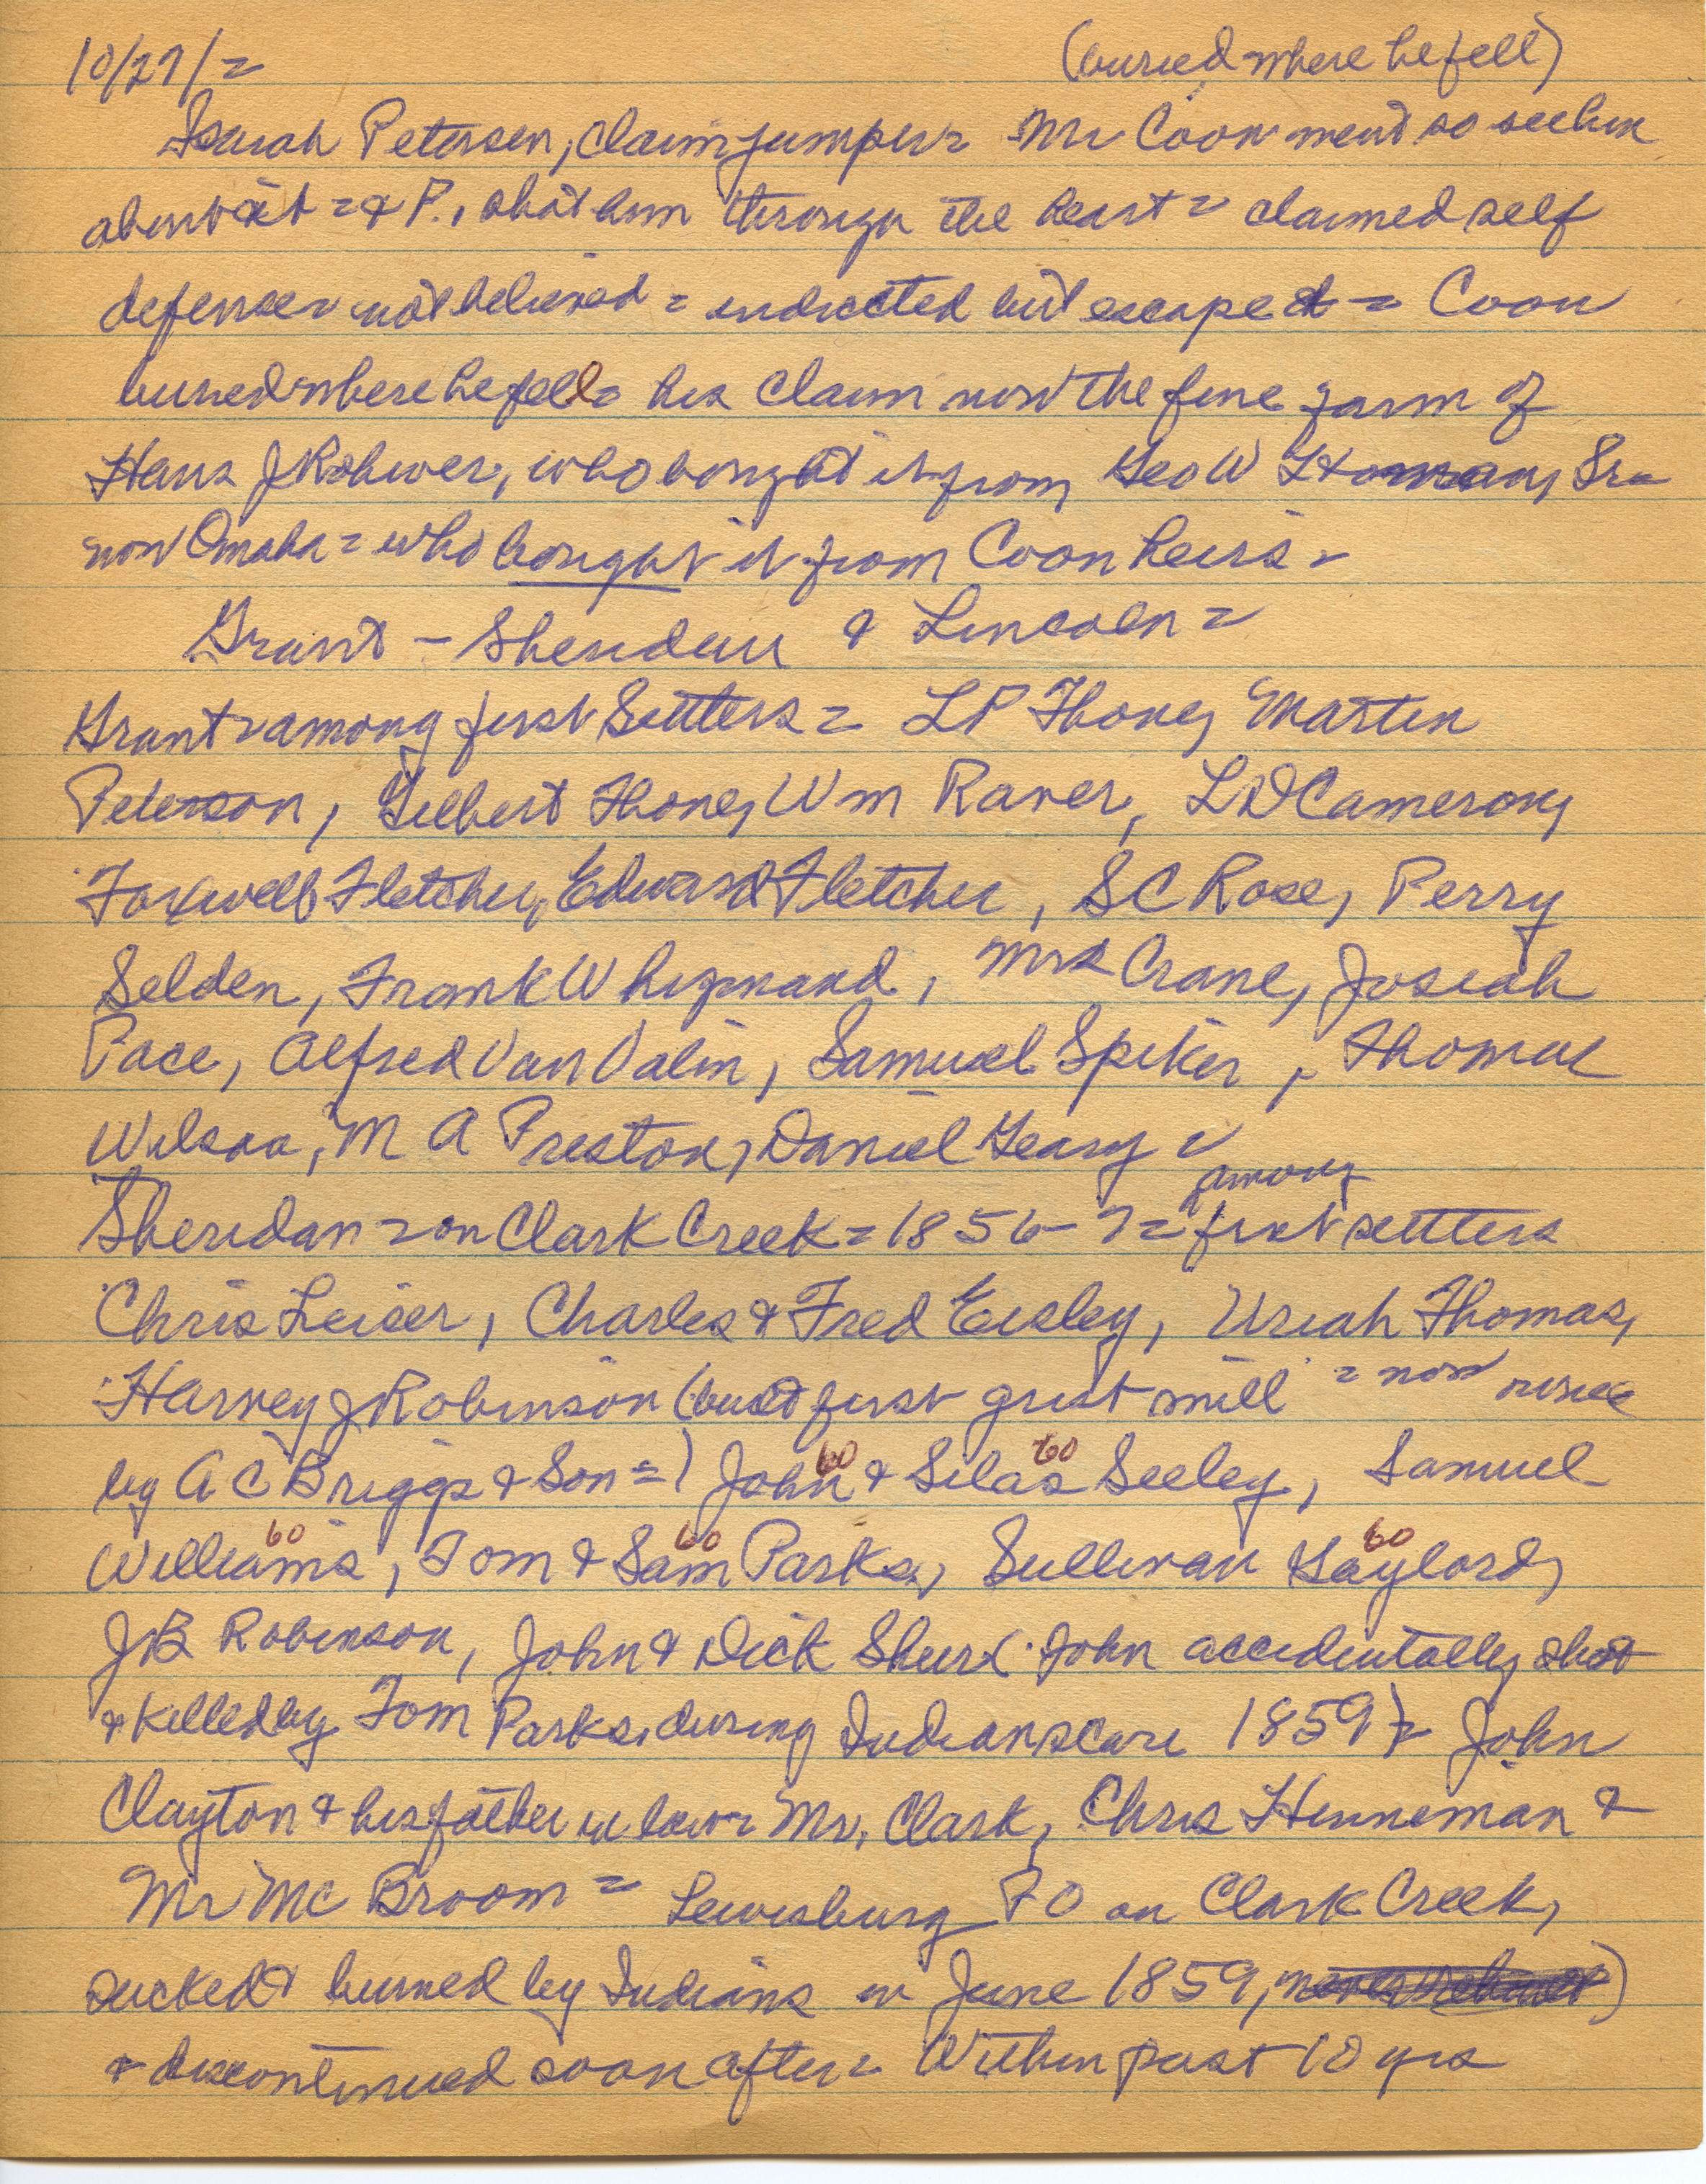 10/27/=
(buried where he fell)
Isaiah Petersen, claim jumper = Mr Coon went to see him
about it = & P., shot him through the heart = claimed self
defense = not believed = indicted but escaped = Coon
buried where he fell = his claim now the fine farm of
Hans J Rohwer, who bought it from Geo W Homan, Sr =
now Omaha = who bought it from Coon heirs =
Grant - Sheridan & Lincoln =
Grant = among first Settlers = L P Thone, Martin
Peterson, Gilbert Thone, Wm Raver, L D Cameron,
Foxwell Fletcher, Edward Fletcher, S C Rose, Perry
Selden, Frank Whizinand, Mrs Crane, Josiah
Pace, Alfred Van Valin, Samuel Spiker, Thomas
Wilson, M A Preston, Daniel Geary =
among
Sheridan = on Clark Creek = 1856-7 = first settlers
Chris Leiser, Charles & Fred Eisley, Uriah Thomas,
Harvey J Robinson (built first grist mill = now owned
by A C Briggs & Son =) John & Silas Seeley, Samuel
60 60
Williams, Tom & Sam Parks, Sullivan Gaylord,
60 60 60
J B Robinson, John & Dick Sheer (John accidentally shot
& killed by Tom Parks, during Indian scare 1859) = John
Clayton & his father in law = Mr. Clark, Chris Hinneman &
Mr Mc Broom = Lewisburg P O on Clark Creek,
sacked & burned by Indians in June 1859,
& discontinued soon after = Within past 10 yrs